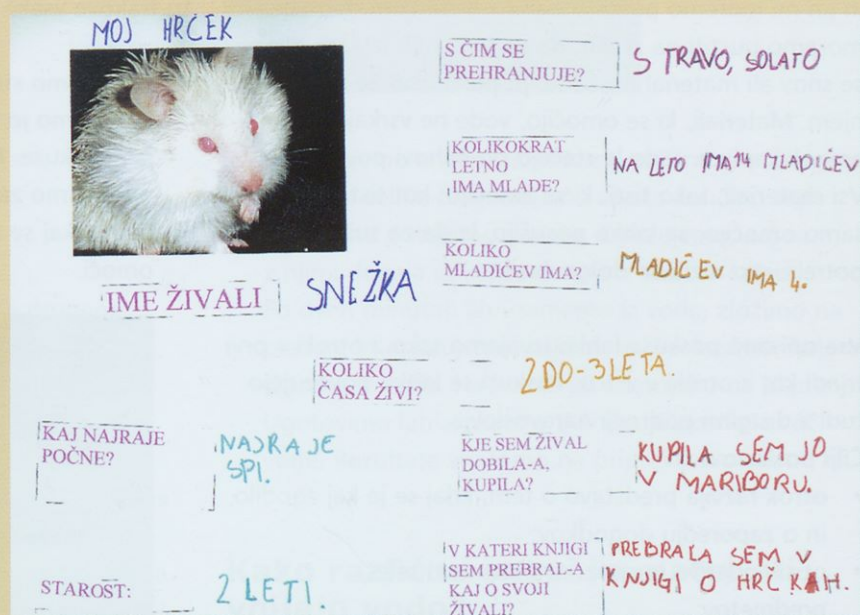 MOJ HRČEK
S ČIM SE
PREHRANJUJE?
S TRAVO, SOLATO
KOLIKOKRAT
LETNO
IMA MLADE?
NA LETO IMA 14 MLADIČEV
KOLIKO
MLADIČEV IMA?
MLADIČEV IMA 4.
IME ŽIVALI
SNEŽKA
KOLIKO
ČASA ŽIVI?
2DO-3LETA.
KAJ NAJRAJE
POČNE?
NAJRAJE
SPI.
KJE SEM ŽIVAL
DOBILA-A,
KUPILA?
KUPILA SEM JO
V MARIBORU.
STAROST:
2 LETI.
V KATERI KNJIGI
SEM PREBRAL-A
KAJ O SVOJI
ŽIVALI?
PREBRALA SEM V
KNJIGI O HRČKAH.